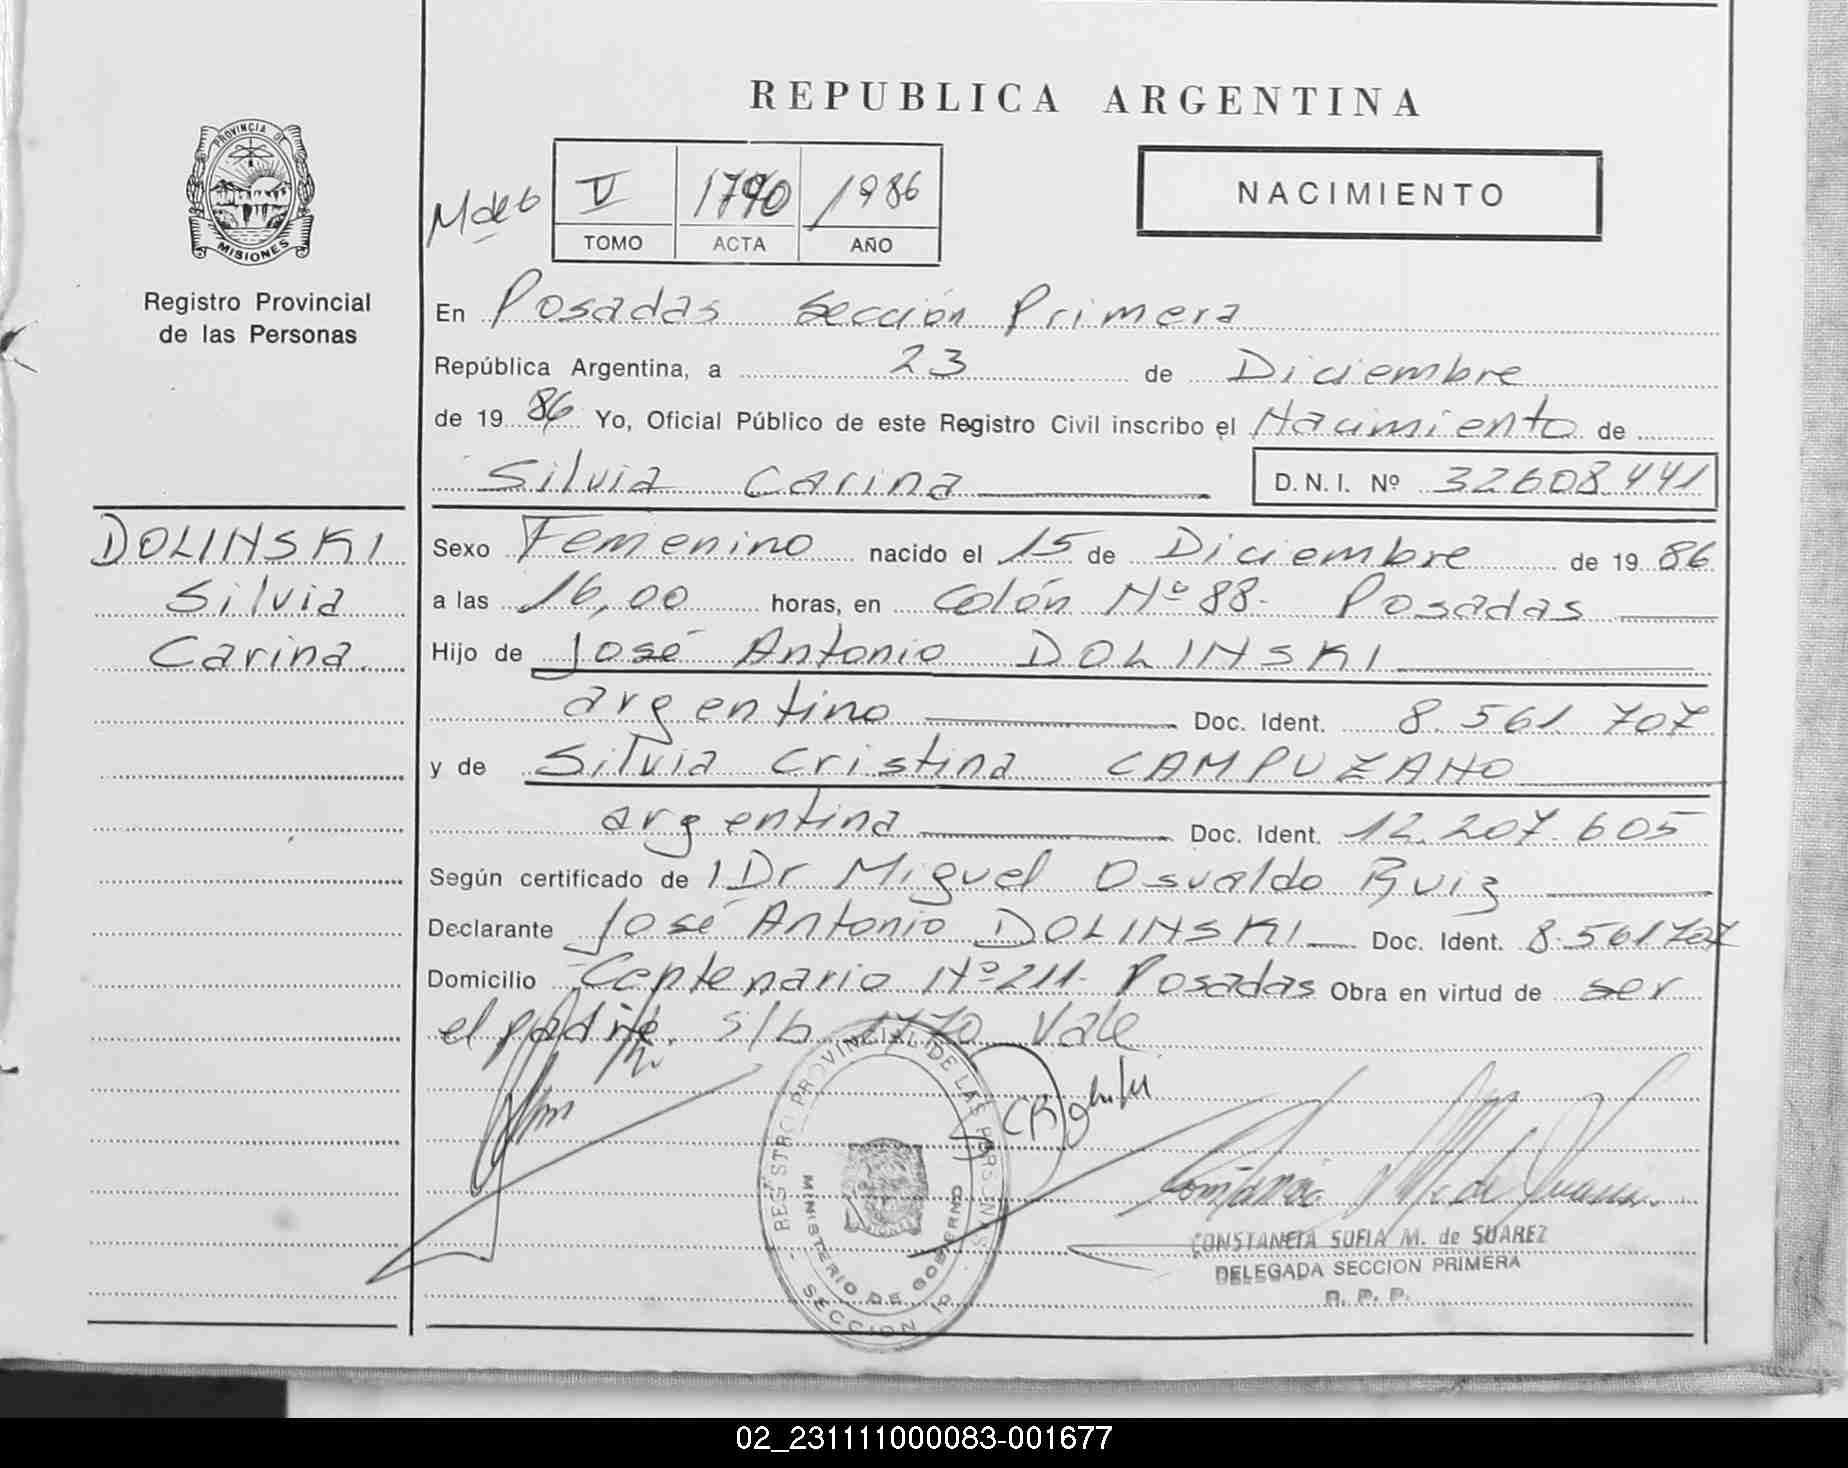 REPUBLICA ARGENTINA
PROVINCIA DE
MISIONES
Registro Provincial
de las Personas
V 1986
TOMO ACTA AÑO
NACIMIENTO
En Posadas Sección Primera
República Argentina, a 23 de Diciembre
de 19 86 Yo, Oficial Público de este Registro Civil inscribo el Nacimiento de
Silvia Carina D.N.I. Nº 32608.441
DOLINSKI
Silvia
Carina.
Sexo Femenino nacido el 15 de Diciembre de 19 86
a las 16,00 horas, en Colón Nº 88. Posadas
Hijo de José Antonio DOLINSKI
argentino Doc. Ident. 8.561.707
y de Silvia Cristina CAMPUZANO
argentina Doc. Ident. 12.207.605
Según certificado de Dr Miguel Osvaldo Ruiz
Declarante José Antonio DOLINSKI Doc. Ident. 8.561707
Domicilio Centenario Nº 211. Posadas Obra en virtud de ser
el padre. s/b 1770 Vale
REGISTRO PROVINCIAL DE LAS PERSONAS
MINISTERIO DE GOBIERNO
SECCION 1º
CONSTANCIA SOFIA M. de SUAREZ
DELEGADA SECCION PRIMERA
R. P. P.
02_231111000083-001677